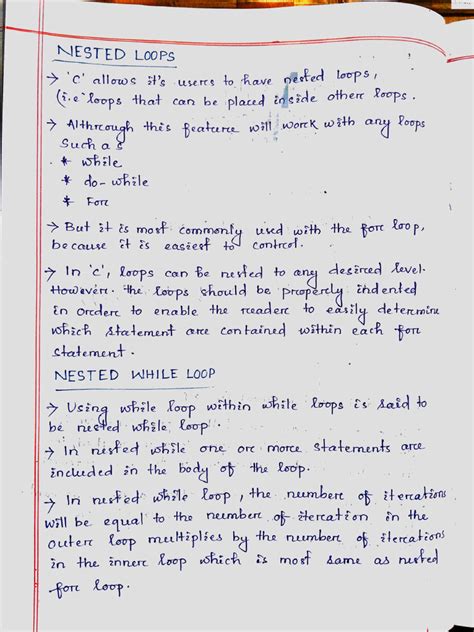 NESTED LOOPS
→ 'C' allows it's users to have nested loops,
(i.e loops that can be placed inside other loops.
→ Althrough this feature will work with any loops
Such as
* while
* do-while
* For
→ But it is most commonly used with the for loop,
because it is easiest to control.
→ In 'c', loops can be nested to any desired level.
However. the loops should be properly indented
in order to enable the reader to easily determine
which statement are contained within each for
statement.
NESTED WHILE LOOP
→ Using while loop within while loops is said to
be nested while loop.
→ In nested while one or more statements are
included in the body of the loop.
→ In nested while loop, the number of iterations
will be equal to the number of iteration in the
outer loop multiplies by the number of iterations
in the inner loop which is most same as nested
for loop.